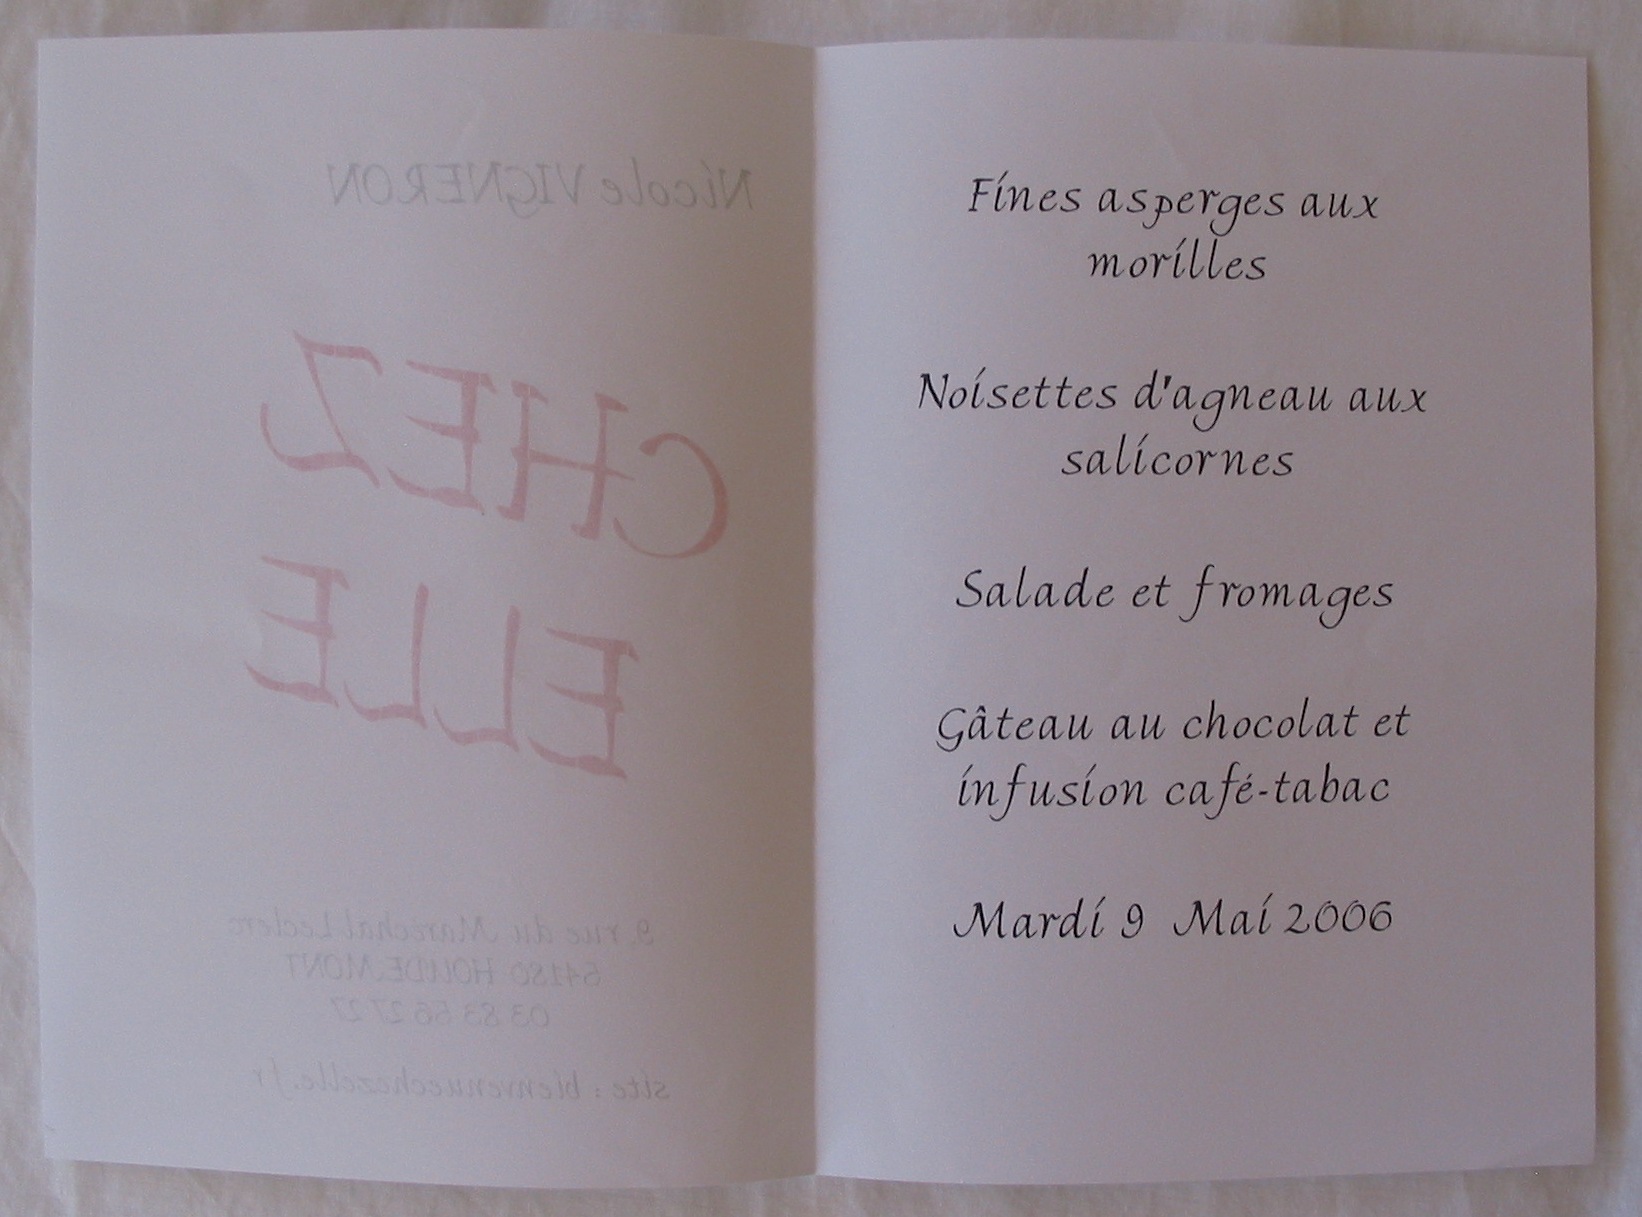 Nicole VIGNERON
CHEZ
ELLE
9, rue du Maréchal Leclerc
54180 HOUDEMONT
03 83 56 27 27
site : bienvenuechezelle.fr
Fines asperges aux
morilles
Noisettes d'agneau aux
salicornes
Salade et fromages
Gâteau au chocolat et
infusion café-tabac
Mardi 9 Mai 2006